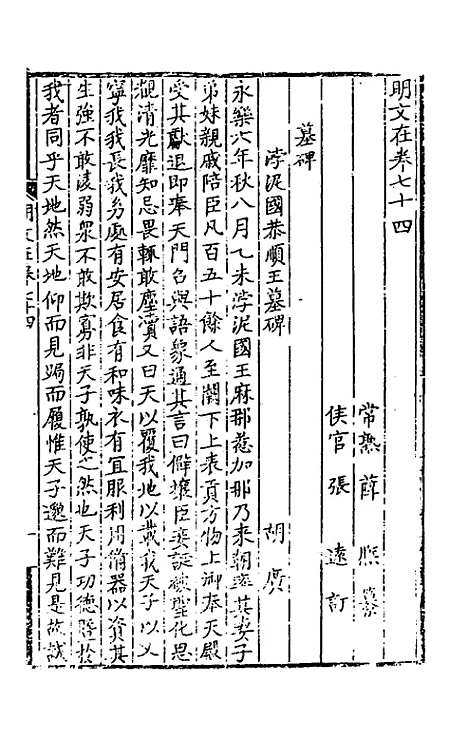 明文在卷七十四
常熟薛熙纂
侯官張遠訂
墓碑
浡泥國恭順王墓碑 胡廣
永樂六年秋八月乙未浡泥國王麻那惹加那乃來朝率其妻子
弟妹親戚陪臣凡百五十餘人至闕下上表貢方物上御奉天殿
受其獻退即奉天門召與語象通其言曰僻壤臣妾誕被聖化思
覩清光靡知忌畏輒敢塵瀆又曰天以覆我地以載我天子以乂
寧我我長我㓜處有安居食有和味衣有宜服利用備器以資其
生強不敢凌弱衆不敢欺寡非天子孰使之然也天子功德曁於
我者同乎天地然天地仰而見跼而履惟天子邈而難見是故誠
明文在卷七十四
一